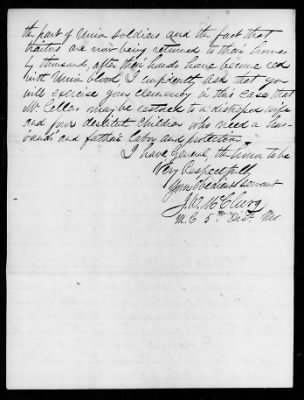 the part of Union soldiers and the fact that
traitors are now being returned to their homes
by thousands, after their hands have become red
with Union blood, I earnestly ask that you
will exercise your clemency in this case that
Mr Cellar may be restored to a distressed wife
and four destitute children who need a hus-
band's and father's labor and protection
I have General, the honor to be
Very Respectfully
Your obedient servant
J. W. McClurg
M. C. 5th Dist. Mo